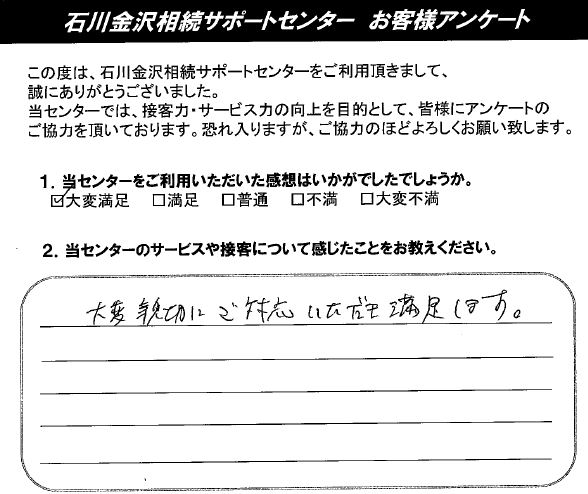 石川金沢相続サポートセンター お客様アンケート
この度は、石川金沢相続サポートセンターをご利用頂きまして、
誠にありがとうございました。
当センターでは、接客力・サービス力の向上を目的として、皆様にアンケートの
ご協力を頂いております。恐れ入りますが、ご協力のほどよろしくお願い致します。
1. 当センターをご利用いただいた感想はいかがでしたでしょうか。
☑大変満足 □満足 □普通 □不満 □大変不満
2. 当センターのサービスや接客について感じたことをお教えください。
大変親切にご対応いただき満足します。